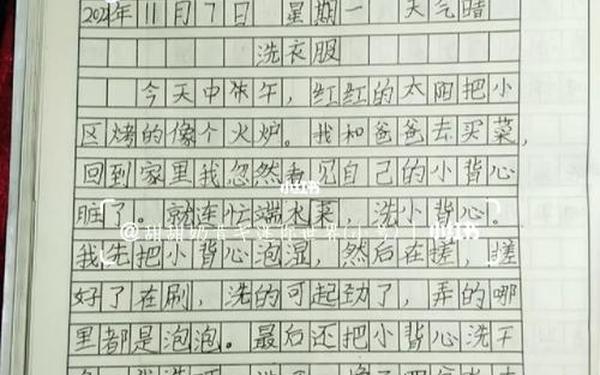 2021年11月7日 星期一 天气晴
洗衣服
今天中午，红红的太阳把小
区烤的像个火炉。我和爸爸去买菜，
回到家里我忽然看见自己的小背心
脏了。就连忙端水来，洗小背心。
小红书
我先把小背心泡湿，然后在搓，搓
好了在刷，洗的可起劲了，弄的哪
里都是泡泡。最后还把小背心洗干